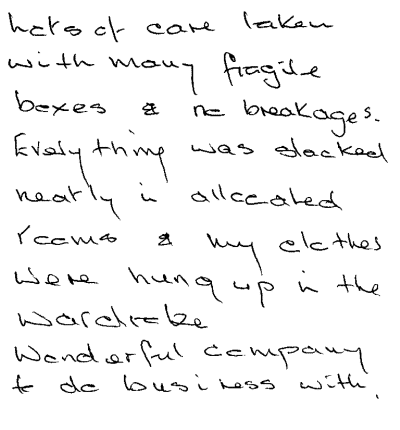 Lots of care taken
with many fragile
boxes & no breakages.
Everything was stacked
neatly in allocated
rooms & my clothes
were hung up in the
wardrobe
Wonderful company
to do business with.